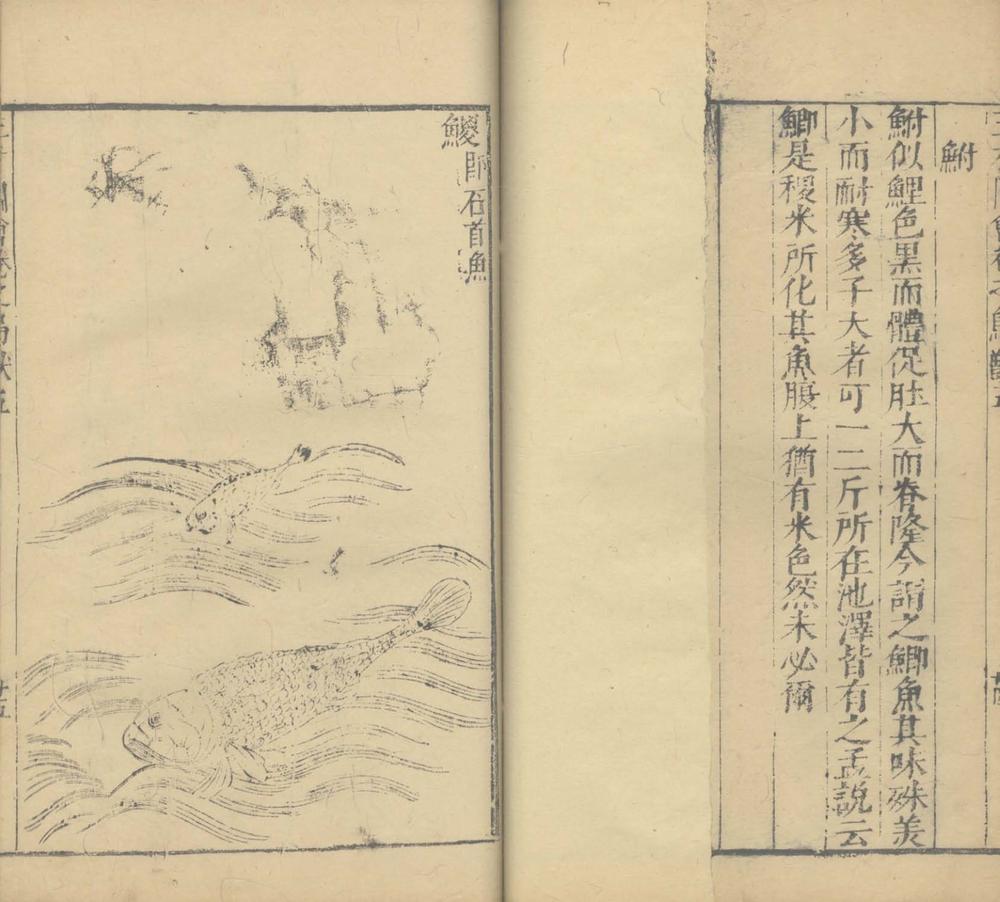 鮒
鮒似鯉色黑而體促肚大而脊隆今謂之鯽魚其味殊美
小而耐寒多子大者可一二斤所在池澤皆有之孟說云
鯽是稷米所化其魚腹上猶有米色然未必爾
鯼即石首魚